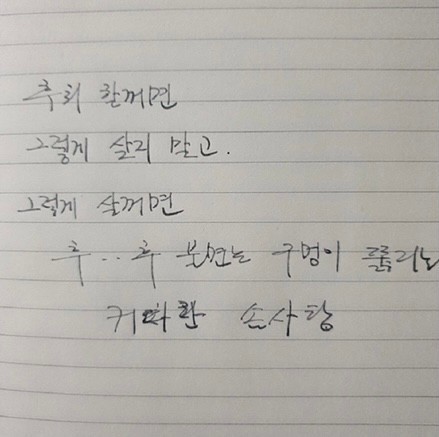 후회 할꺼면
그렇게 살지 말고.
그렇게 살꺼면
후..후 불면는 구멍이 뚫리는
커다란 솜사탕